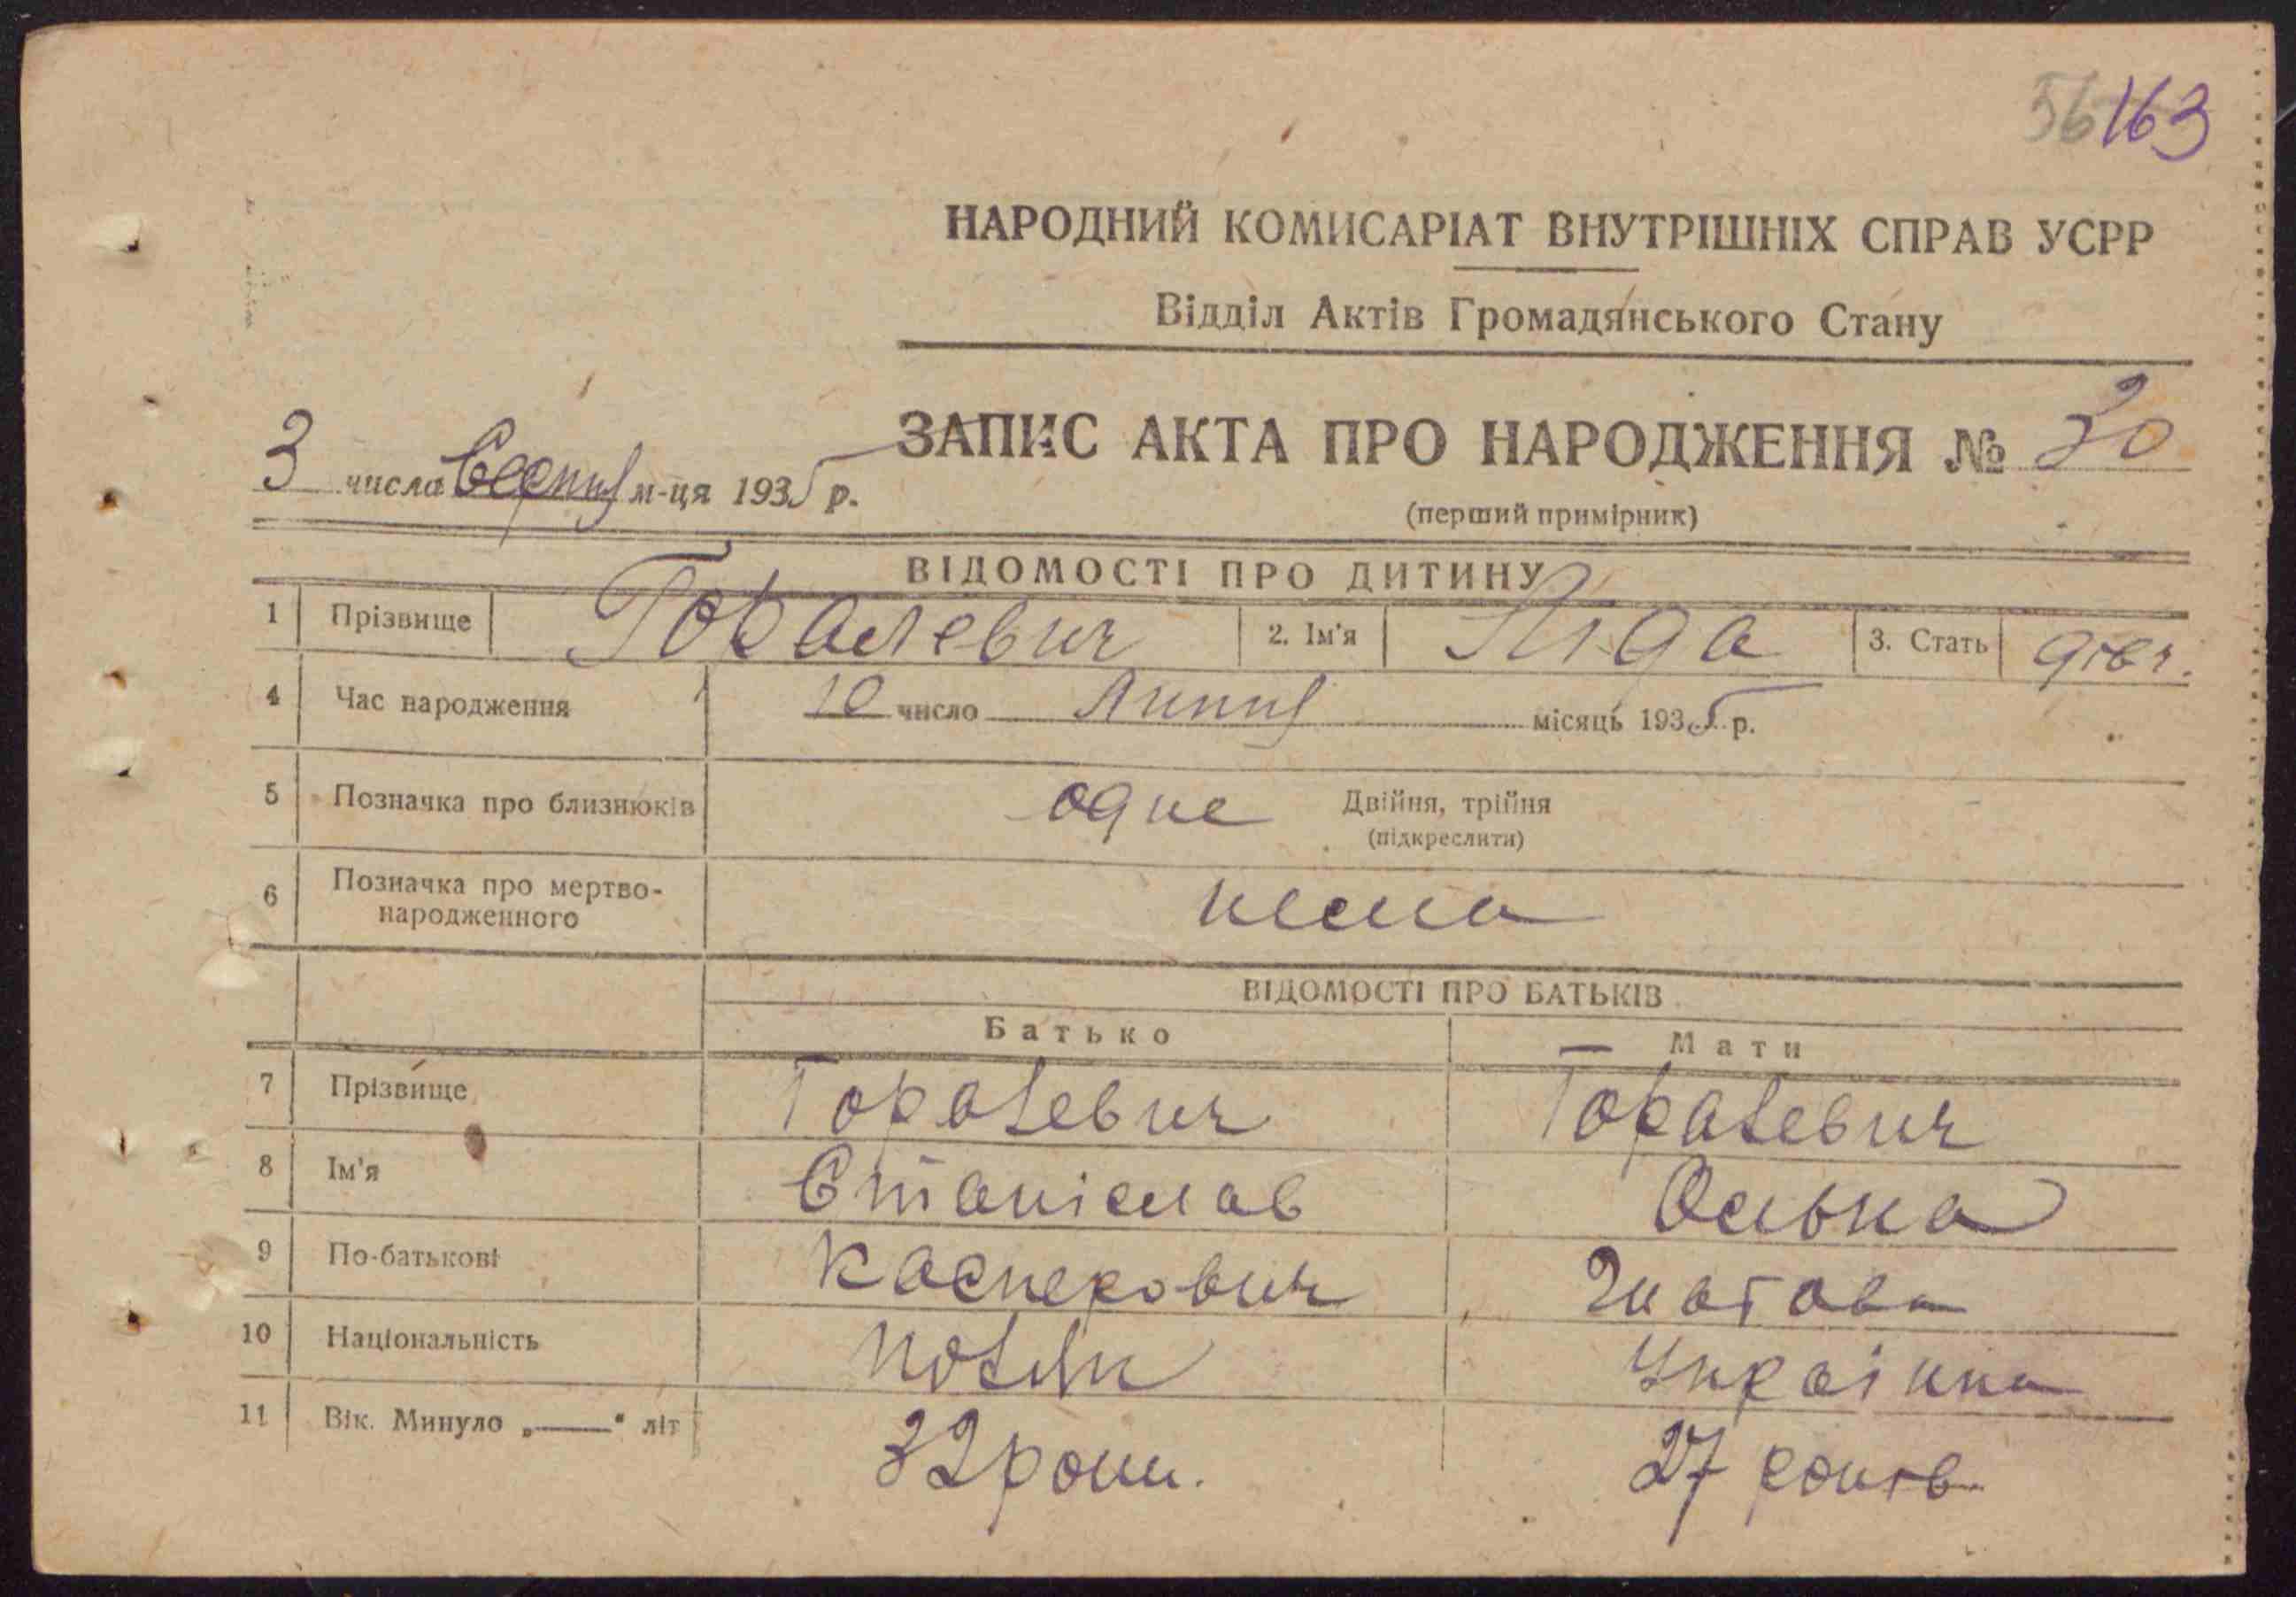 56 163
НАРОДНИЙ КОМИСАРІАТ ВНУТРІШНІХ СПРАВ УСРР
Відділ Актів Громадянського Стану
ЗАПИС АКТА ПРО НАРОДЖЕННЯ № 30
3 числа Серпня м-ця 1935 р.
(перший примірник)
ВІДОМОСТІ ПРО ДИТИНУ
1 Прізвище Горалевич 2. Ім'я Ліда 3. Стать дівч.
4 Час народження 10 число Липня місяць 1935 р.
5 Позначка про близнюків одне Двійня, трійня
(підкреслити)
6 Позначка про мертво-
народженного нема
ВІДОМОСТІ ПРО БАТЬКІВ
Батько Мати
7 Прізвище Горалевич Горалевич
8 Ім'я Станіслав Олька
9 По-батькові Касперович Ігнатова
10 Національність поляк Українка
11 Вік. Минуло „——" літ 32 роки. 27 років